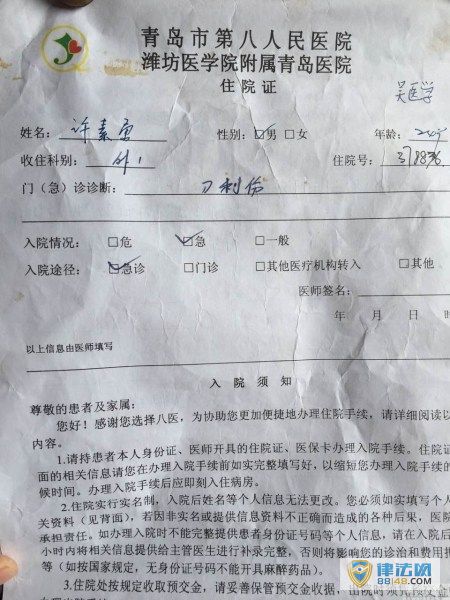 青岛市第八人民医院
潍坊医学院附属青岛医院
住院证
姓名： 性别：☑男 □女 年龄：
收住科别：外1 住院号：
门（急）诊诊断：刀刺伤
入院情况：□危 ☑急 □一般
入院途径：☑急诊 □门诊 □其他医疗机构转入 □其他
医师签名：
年 月 日
以上信息由医师填写
入院须知
尊敬的患者及家属：
您好！感谢您选择八医，为协助您更加便捷地办理住院手续，请详细阅读以
内容。
1.请持患者本人身份证、医师开具的住院证、医保卡办理入院手续。住院证
面的相关信息请您在办理入院手续前如实完整填写好，以缩短您办理手续的
候时间。办理入院手续后应即刻入住病房。
2.住院实行实名制，入院后姓名等个人信息无法更改。您必须如实填写个人
关资料（见背面），若因非实名或提供信息资料不正确而造成的各种后果，医院
承担责任。如办理入院时不能完整提供患者身份证号码等个人信息，请在入院后
小时内将相关信息提供给主管医生进行补录完整，否则将影响您的诊治和费用报
等（如按国家规定，无身份证号码不能开具麻醉药品）。
3.住院处按规定收取预交金，请妥善保管预交金收据，出院时须凭预交金
律法网
88148.com